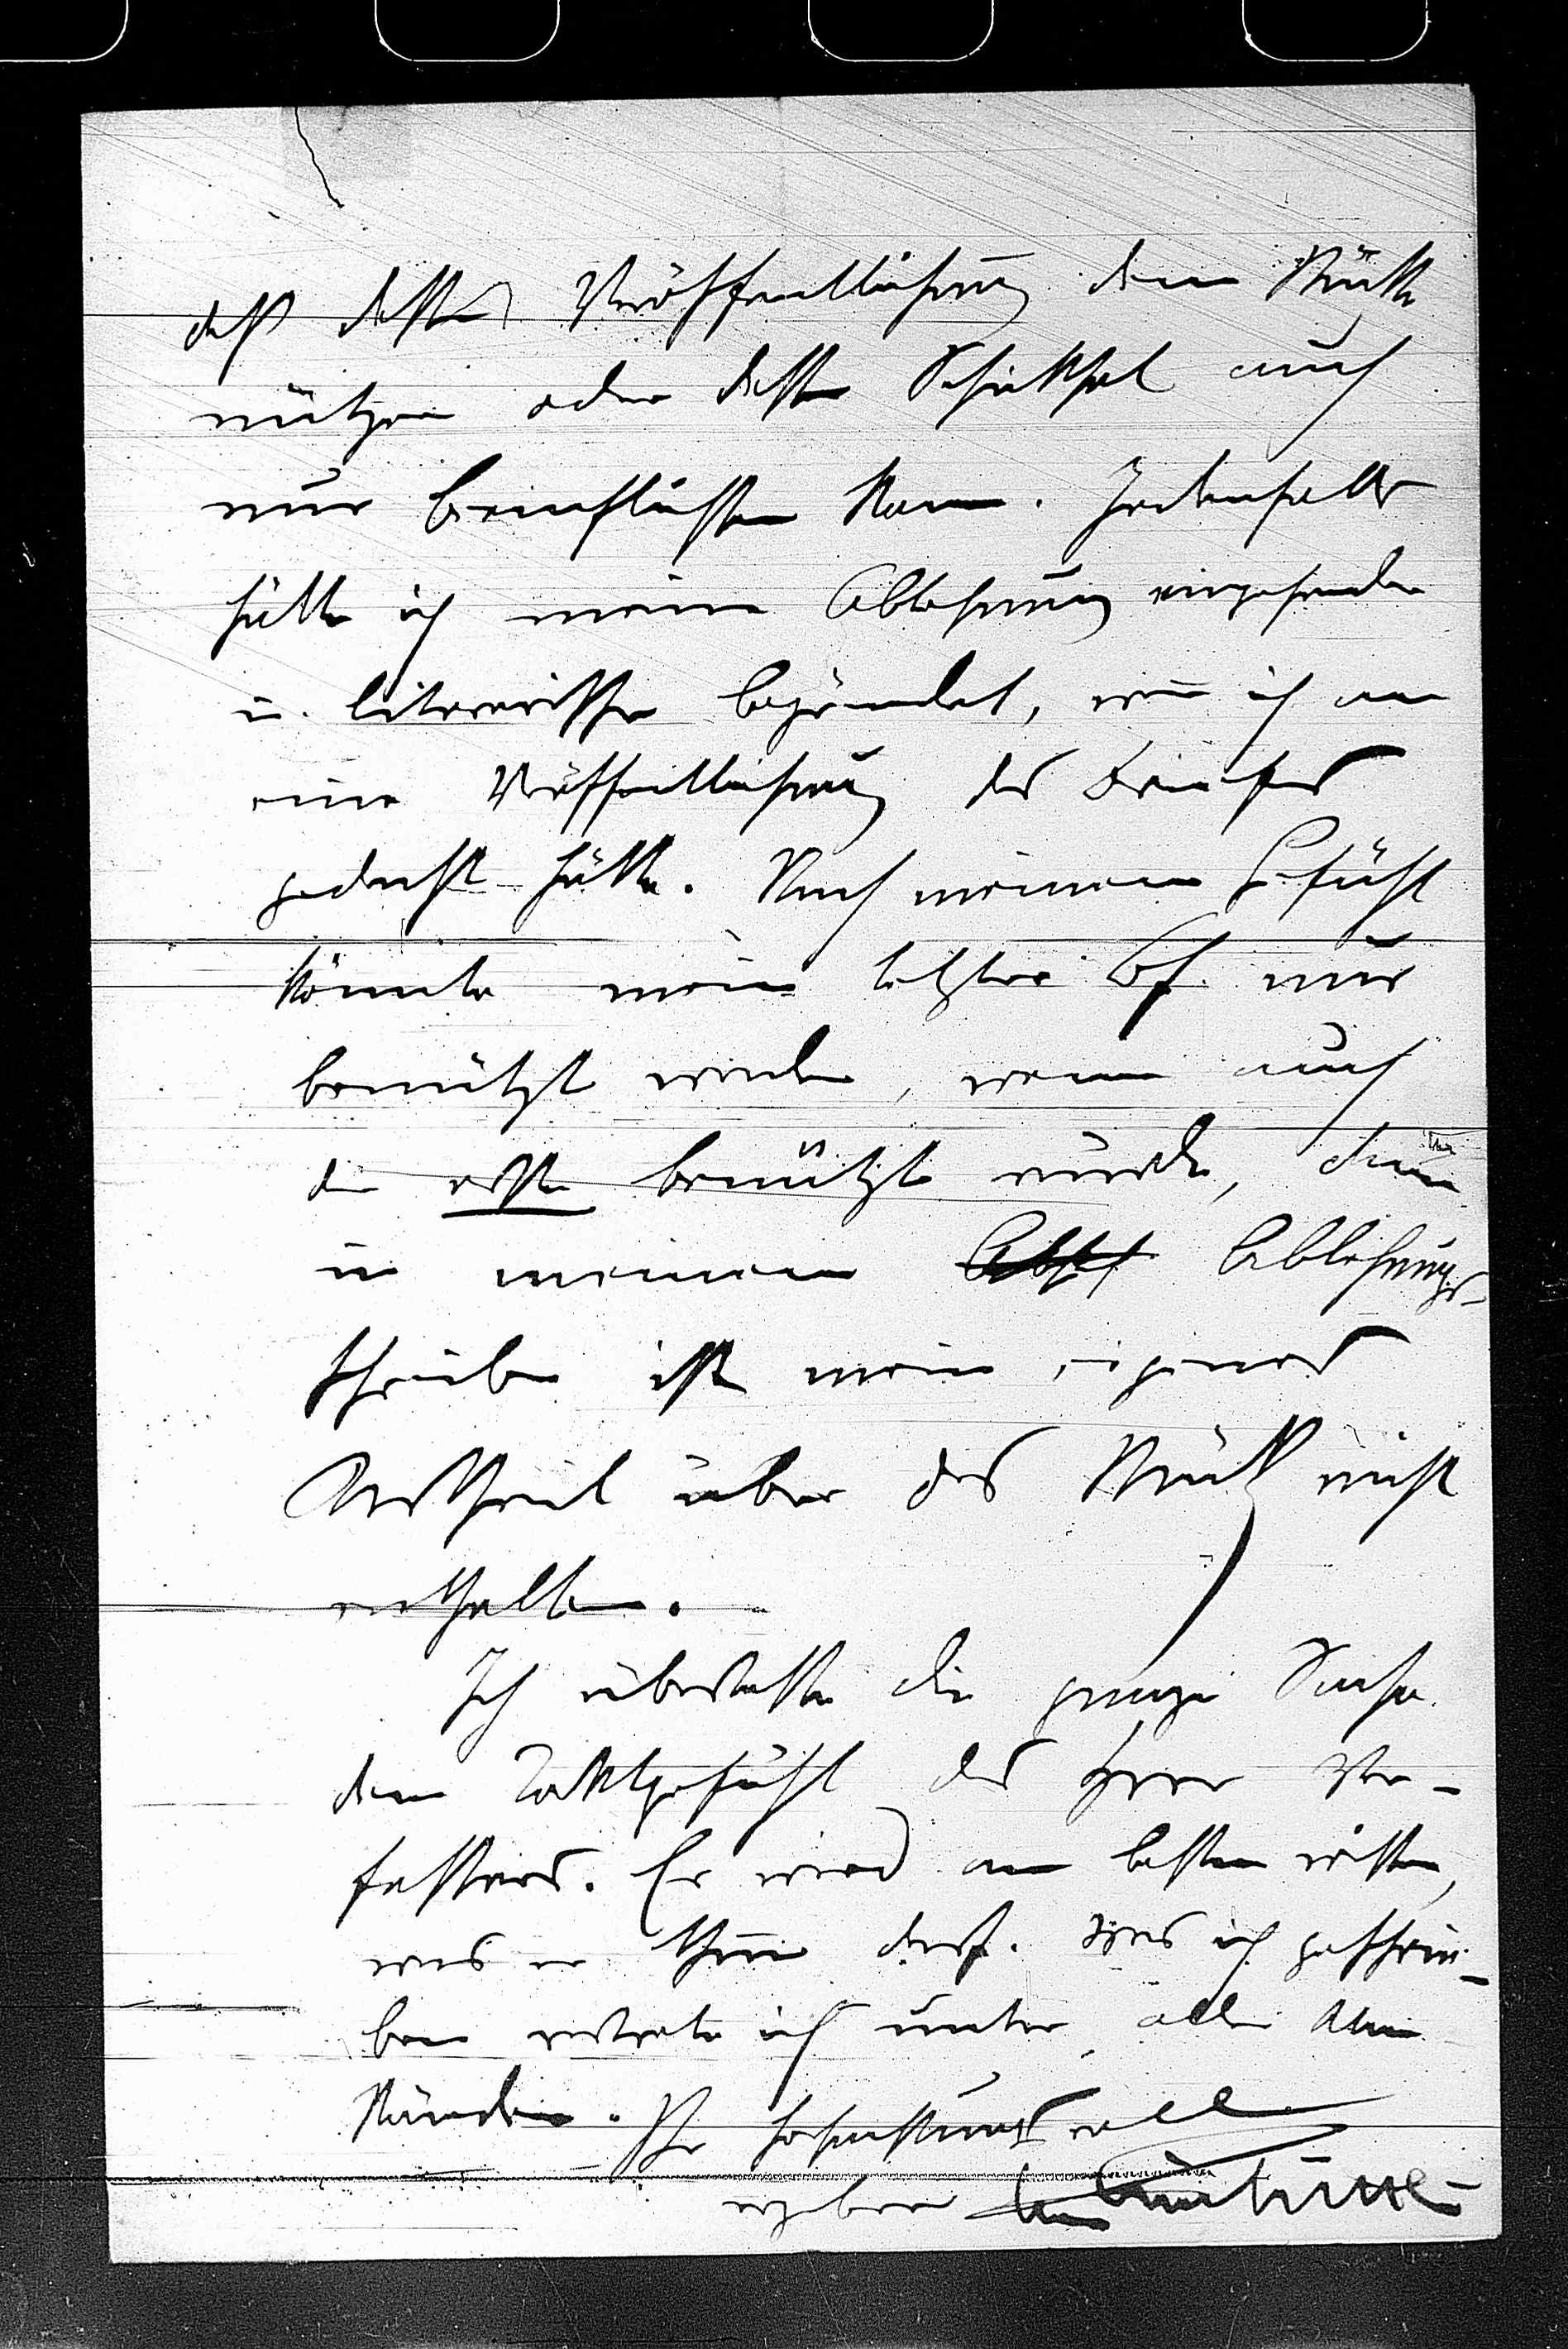 daß dessen Veröffentlichung dem Stücke
nützen oder dessen Schicksal auch
nur beeinflussen kann. Jedenfalls
hätte ich meine Ablehnung eingehender
u. literarischer begründet, wenn ich an
eine Veröffentlichung des Briefes
gedacht hätte. Nach meinem Gefühl
könnte mein letzter Bf. nur
benützt werden, wenn auch
der erste benützt würde, denn
in meinem Ablehnungs-
schreiben ist mein eigenes
Urtheil über das Stück nicht
enthalten.
Ich überlasse die ganze Sache
dem Taktgefühl des Herrn Ver-
fassers. Er wird am besten wissen,
was er thun darf. Was ich geschrie-
ben vertrete ich unter allen Um-
ständen. Ihr hochachtungsvoll
ergebener